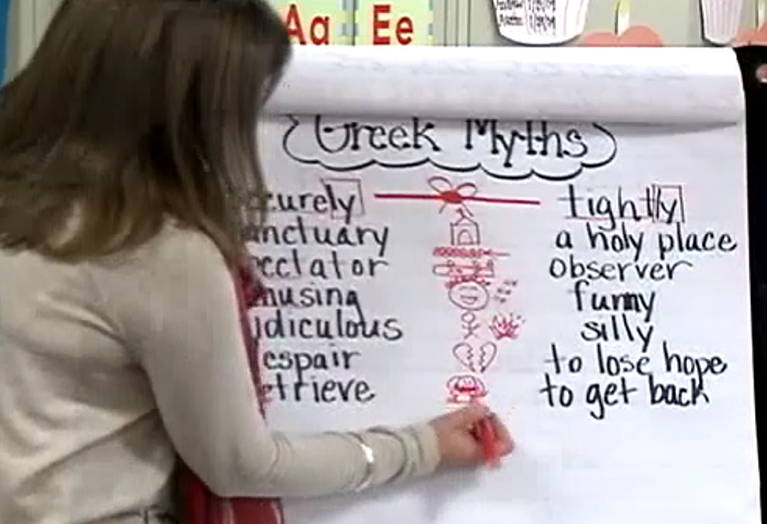 Aa Ee
Greek Myths
curely tightly
anctuary a holy place
observer
musing funny
diculous silly
espair to lose hope
etrieve to get back